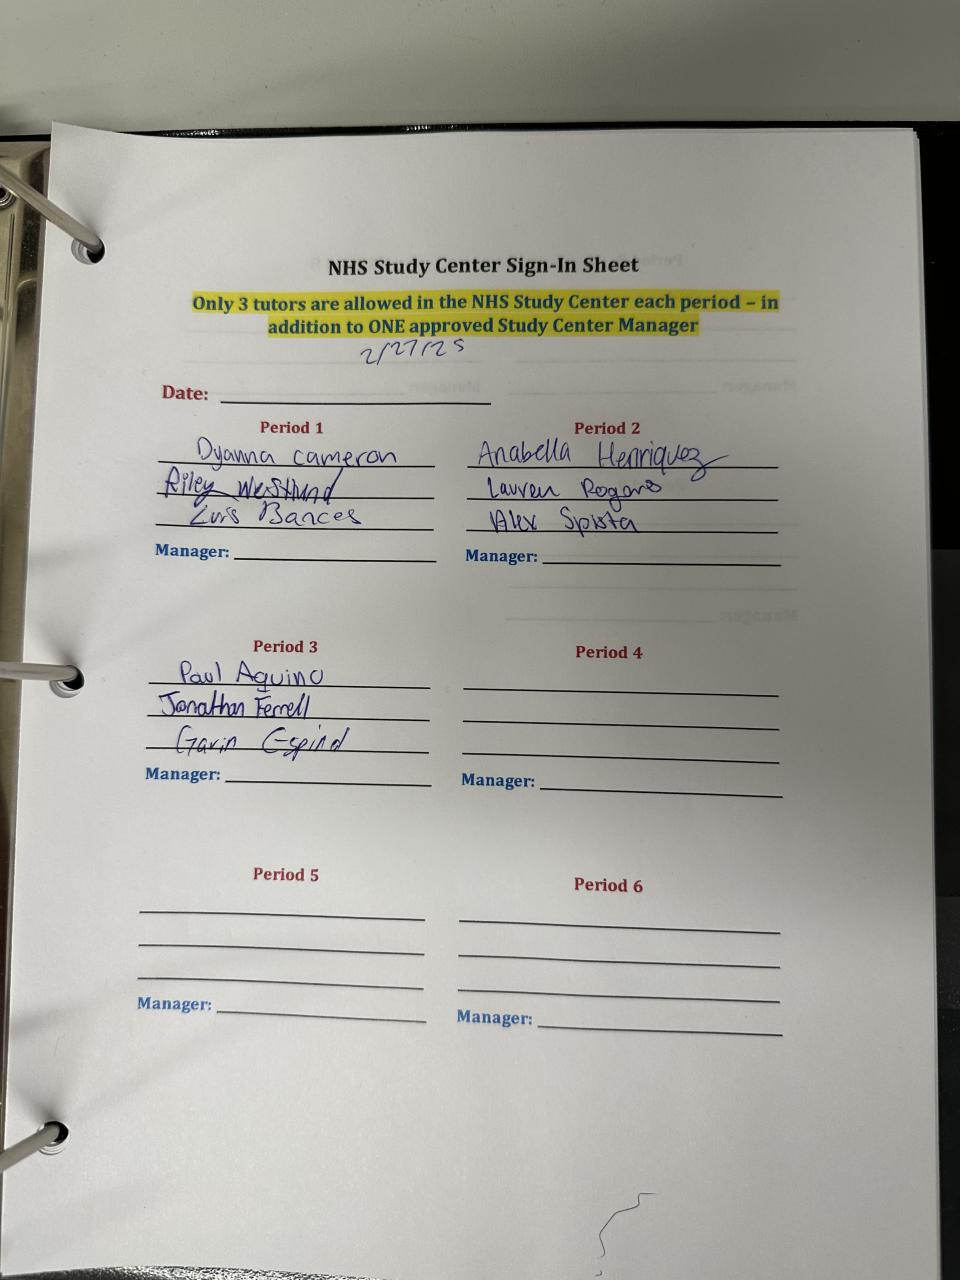 NHS Study Center Sign-In Sheet
Only 3 tutors are allowed in the NHS Study Center each period – in
addition to ONE approved Study Center Manager
2/27/25
Date:
Period 1
Dyanna Cameron
Riley Westlund
Luis Bances
Manager:
Period 2
Anabella Henriquez
Lauren Rogans
Alex Spista
Manager:
Period 3
Paul Aquino
Jonathan Ferrell
Gavin Espind
Manager:
Period 4
Manager:
Period 5
Manager:
Period 6
Manager: